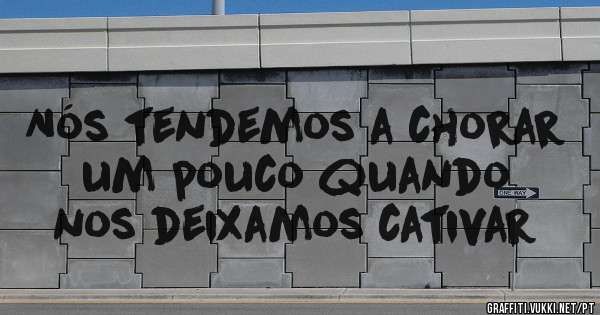 NÓS TENDEMOS A CHORAR
UM POUCO QUANDO
ONE WAY
NOS DEIXAMOS CATIVAR
GRAFFITI.VUKKI.NET/PT